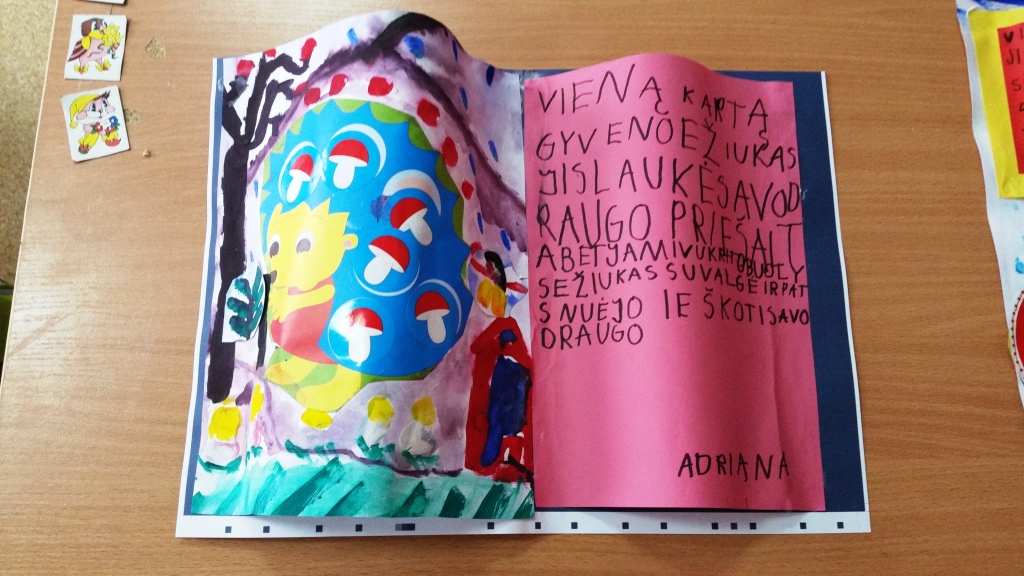 VIENĄ KARTĄ
GYVENO EŽIUKAS
JIS LAUKĖ SAVO D
RAUGO PRIE ŠALT
A BET JAM
S EŽIUKAS SUVALGĖ IR PAT
S NUĖJO IEŠKOTI SAVO
DRAUGO
ADRIANA